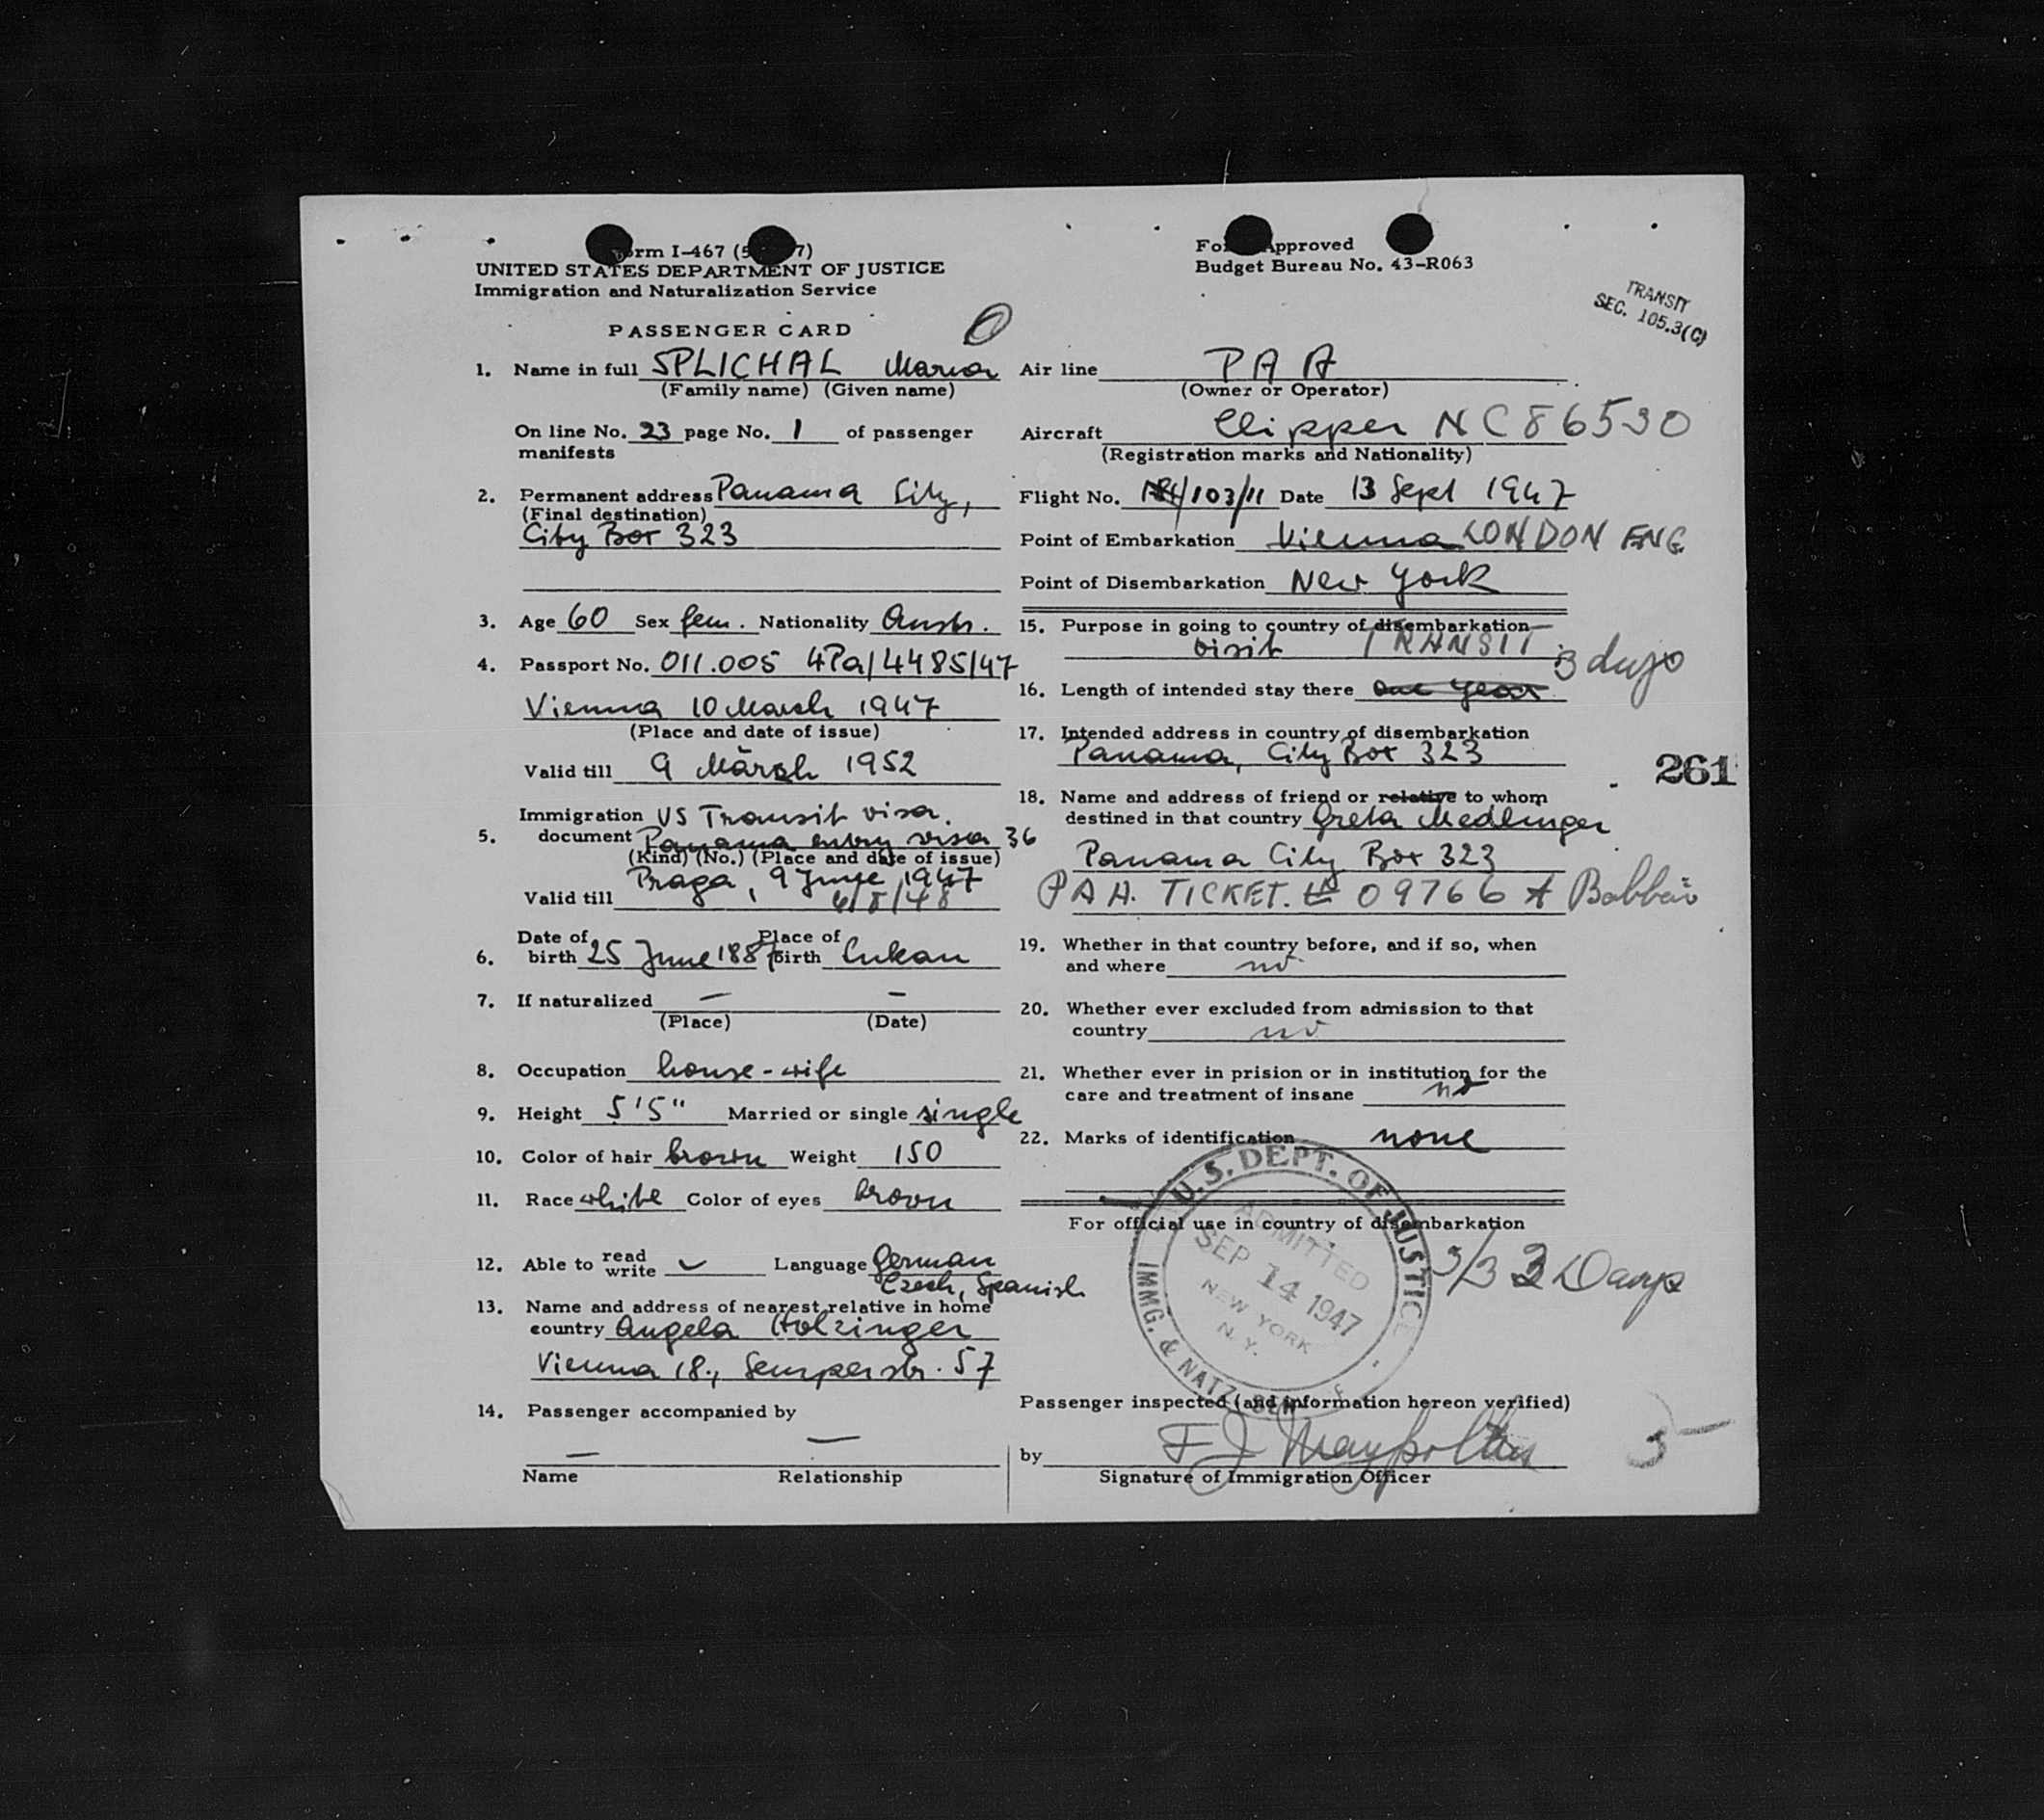 Form I-467 (5 7)
UNITED STATES DEPARTMENT OF JUSTICE
Immigration and Naturalization Service
PASSENGER CARD
1. Name in full SPLICHAL Maria
(Family name) (Given name)
On line No. 23 page No. 1 of passenger
manifests
2. Permanent address Panama City,
(Final destination)
City Box 323
3. Age 60 Sex fem. Nationality Austr.
4. Passport No. 011.005 4Pa/4485/47
Vienna 10 March 1947
(Place and date of issue)
Valid till 9 March 1952
Immigration US Transit visa.
5. document Panama entry visa 36
(Kind) (No.) (Place and date of issue)
Praga, 9 June 1947
Valid till 6/8/48
Date of Place of
6. birth 25 June 1887 birth Lukau
7. If naturalized — —
(Place) (Date)
8. Occupation house-wife
9. Height 5'5" Married or single single
10. Color of hair brown Weight 150
11. Race white Color of eyes brown
12. Able to read write ✓ Language German
Czech, Spanish
13. Name and address of nearest relative in home
country Angela Holzinger
Vienna 18., Semperstr. 57
14. Passenger accompanied by
— —
Name Relationship
Form Approved
Budget Bureau No. 43-R063
TRANSIT
SEC. 105.3(C)
Air line PAA
(Owner or Operator)
Aircraft Clipper NC86530
(Registration marks and Nationality)
Flight No. /103/11 Date 13 Sept 1947
Point of Embarkation Vienna LONDON ENG
Point of Disembarkation New York
15. Purpose in going to country of disembarkation
visit TRANSIT
3 days
16. Length of intended stay there one year
17. Intended address in country of disembarkation
Panama, City Box 323
261
18. Name and address of friend or relative to whom
destined in that country Greta Medlinger
Panama City Box 323
PAA. TICKET. # 09766
19. Whether in that country before, and if so, when
and where no
20. Whether ever excluded from admission to that
country no
21. Whether ever in prision or in institution for the
care and treatment of insane no
22. Marks of identification none
For official use in country of disembarkation
U.S. DEPT. OF JUSTICE
ADMITTED
SEP 14 1947
NEW YORK
N.Y.
IMMG. & NATZ. SERV.
3/3 3 Days
Passenger inspected (and information hereon verified)
by F J
Signature of Immigration Officer